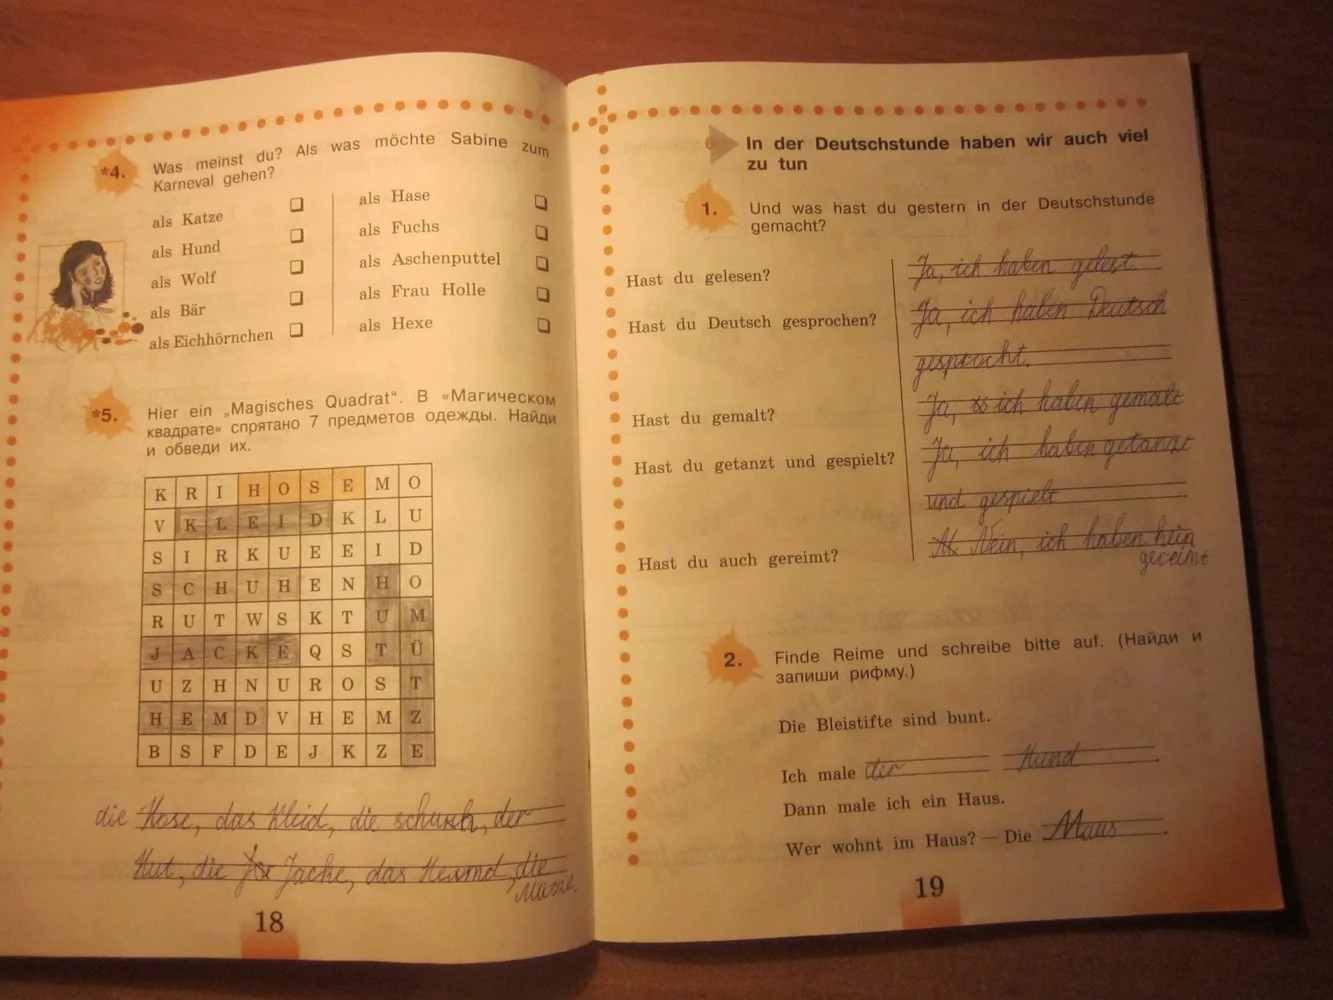 *4. Was meinst du? Als was möchte Sabine zum
Karneval gehen?
als Katze
als Hund
als Wolf
als Bär
als Eichhörnchen
als Hase
als Fuchs
als Aschenputtel
als Frau Holle
als Hexe
*5. Hier ein „Magisches Quadrat“. В «Магическом
квадрате» спрятано 7 предметов одежды. Найди
и обведи их.
K R I H O S E M O
V K L E I D K L U
S I R K U E E I D
S C H U H E N H O
R U T W S K T U M
J A C K E Q S T Ü
U Z H N U R O S T
H E M D V H E M Z
B S F D E J K Z E
die Hose, das Kleid, die schuhh, der
Hut, die Jacke, das Hemd, die
18
In der Deutschstunde haben wir auch viel
zu tun
1. Und was hast du gestern in der Deutschstunde
gemacht?
Hast du gelesen? Ja, ich haben gelest.
Hast du Deutsch gesprochen? Ja, ich haben Deutsch
gesprocht.
Hast du gemalt? Ja, ich haben gemalt
Hast du getanzt und gespielt? Ja, ich haben getanzt
und gespielt
Hast du auch gereimt? Nein, ich haben kein
gereimt
2. Finde Reime und schreibe bitte auf. (Найди и
запиши рифму.)
Die Bleistifte sind bunt.
Ich male der Hund.
Dann male ich ein Haus.
Wer wohnt im Haus? — Die Maus.
19